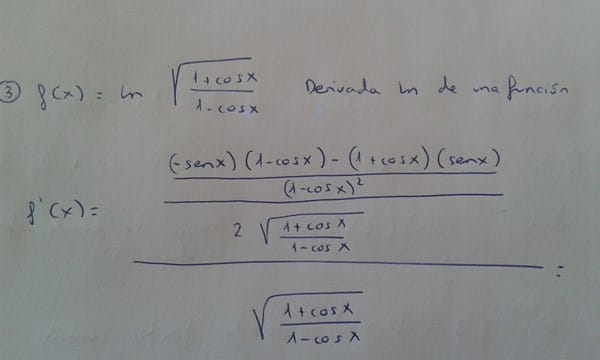 ③ f(x) = ln √((1+cosx)/(1-cosx)) Derivada ln de una función
f'(x) = ((((-senx)(1-cosx) - (1+cosx)(senx))/(1-cosx)²)/(2√((1+cosx)/(1-cosx))))/(√((1+cosx)/(1-cosx))) =